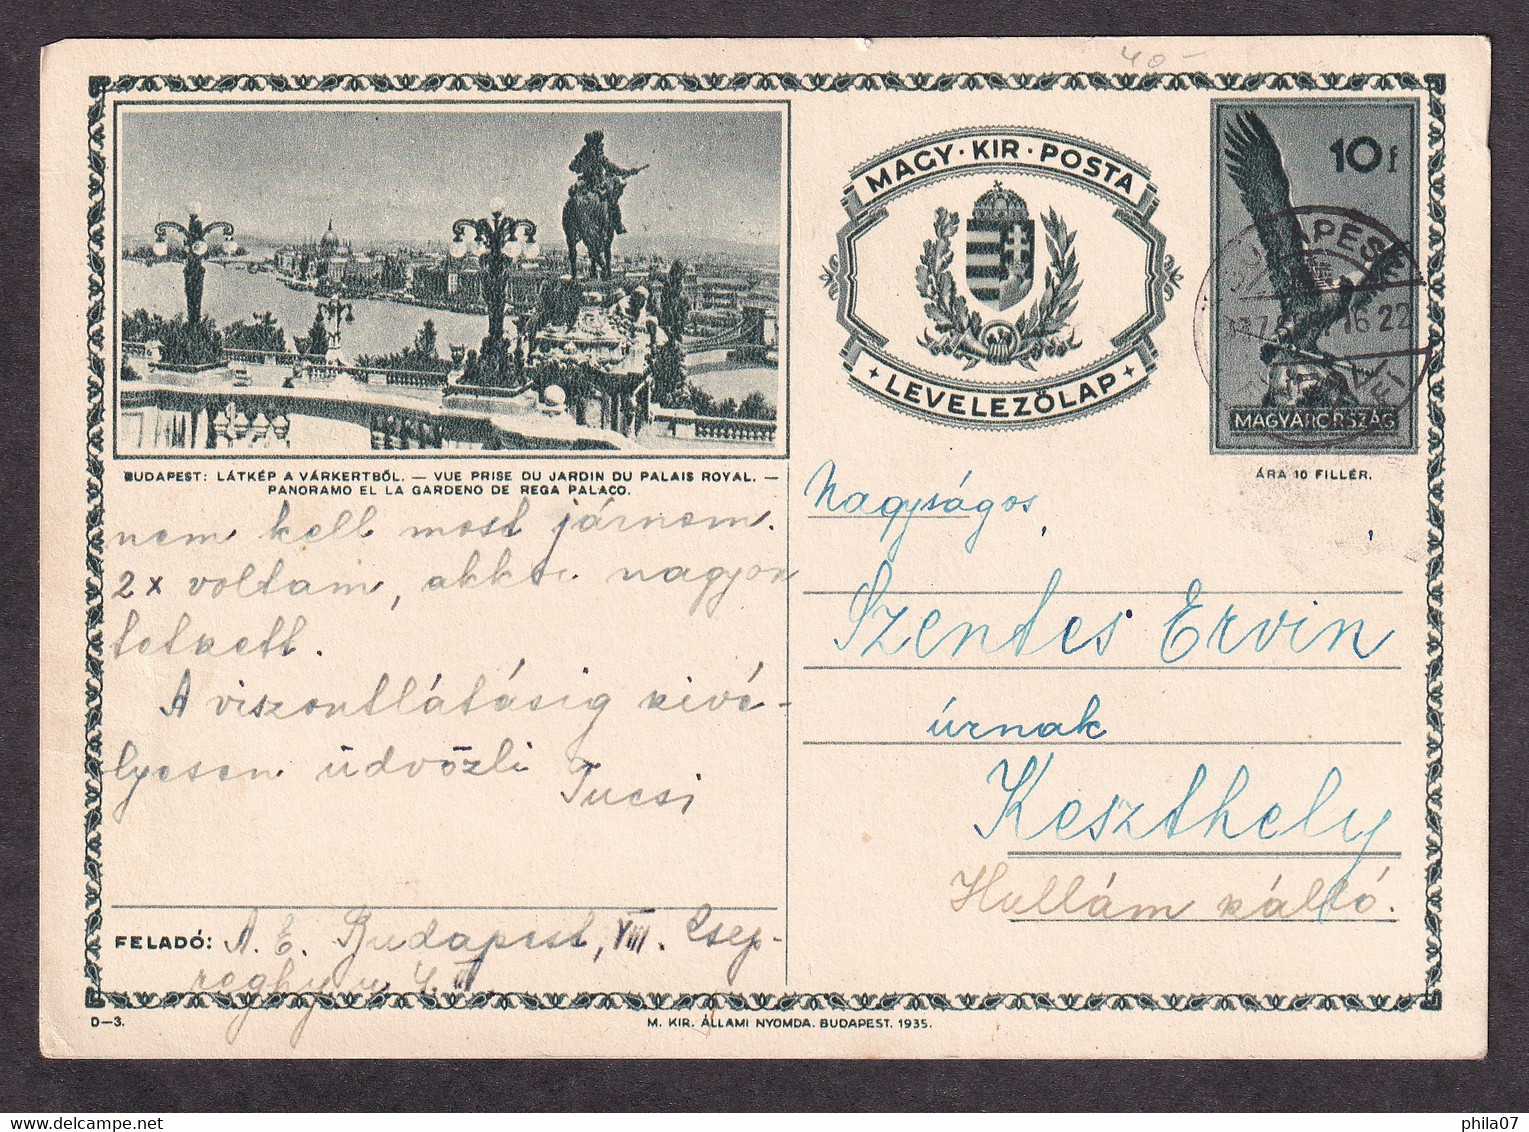 40-
MAGY·KIR·POSTA
LEVELEZŐLAP
10 f
BUDAPEST
16 22
MAGYARORSZÁG
ÁRA 10 FILLÉR.
BUDAPEST: LÁTKÉP A VÁRKERTBŐL. — VUE PRISE DU JARDIN DU PALAIS ROYAL. —
PANORAMO EL LA GARDENO DE REGA PALACO.
nem kell most járnom.
2x voltam, akkor nagyon
tetszett.
A viszontlátásig kivé-
lyesen üdvözli
Tucsi
FELADÓ: A. E. Budapest, VIII. Csep-
reghy u 4. II
Nagyságos
Szentes Ervin
úrnak
Keszthely
Hullám
D—3.
M. KIR. ÁLLAMI NYOMDA. BUDAPEST. 1935.
phila07